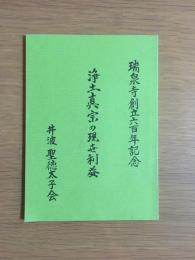 瑞泉寺創立六百年記念
浄土真宗の現世利益
井波 聖徳太子会